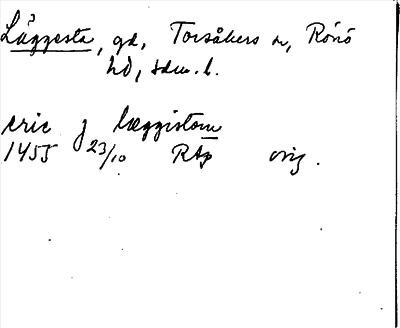 Läggesta, gd, Torsåkers sn, Rönö
hd, Sdm. l.
eric j læggistom
1455 23/10 RAp orig.